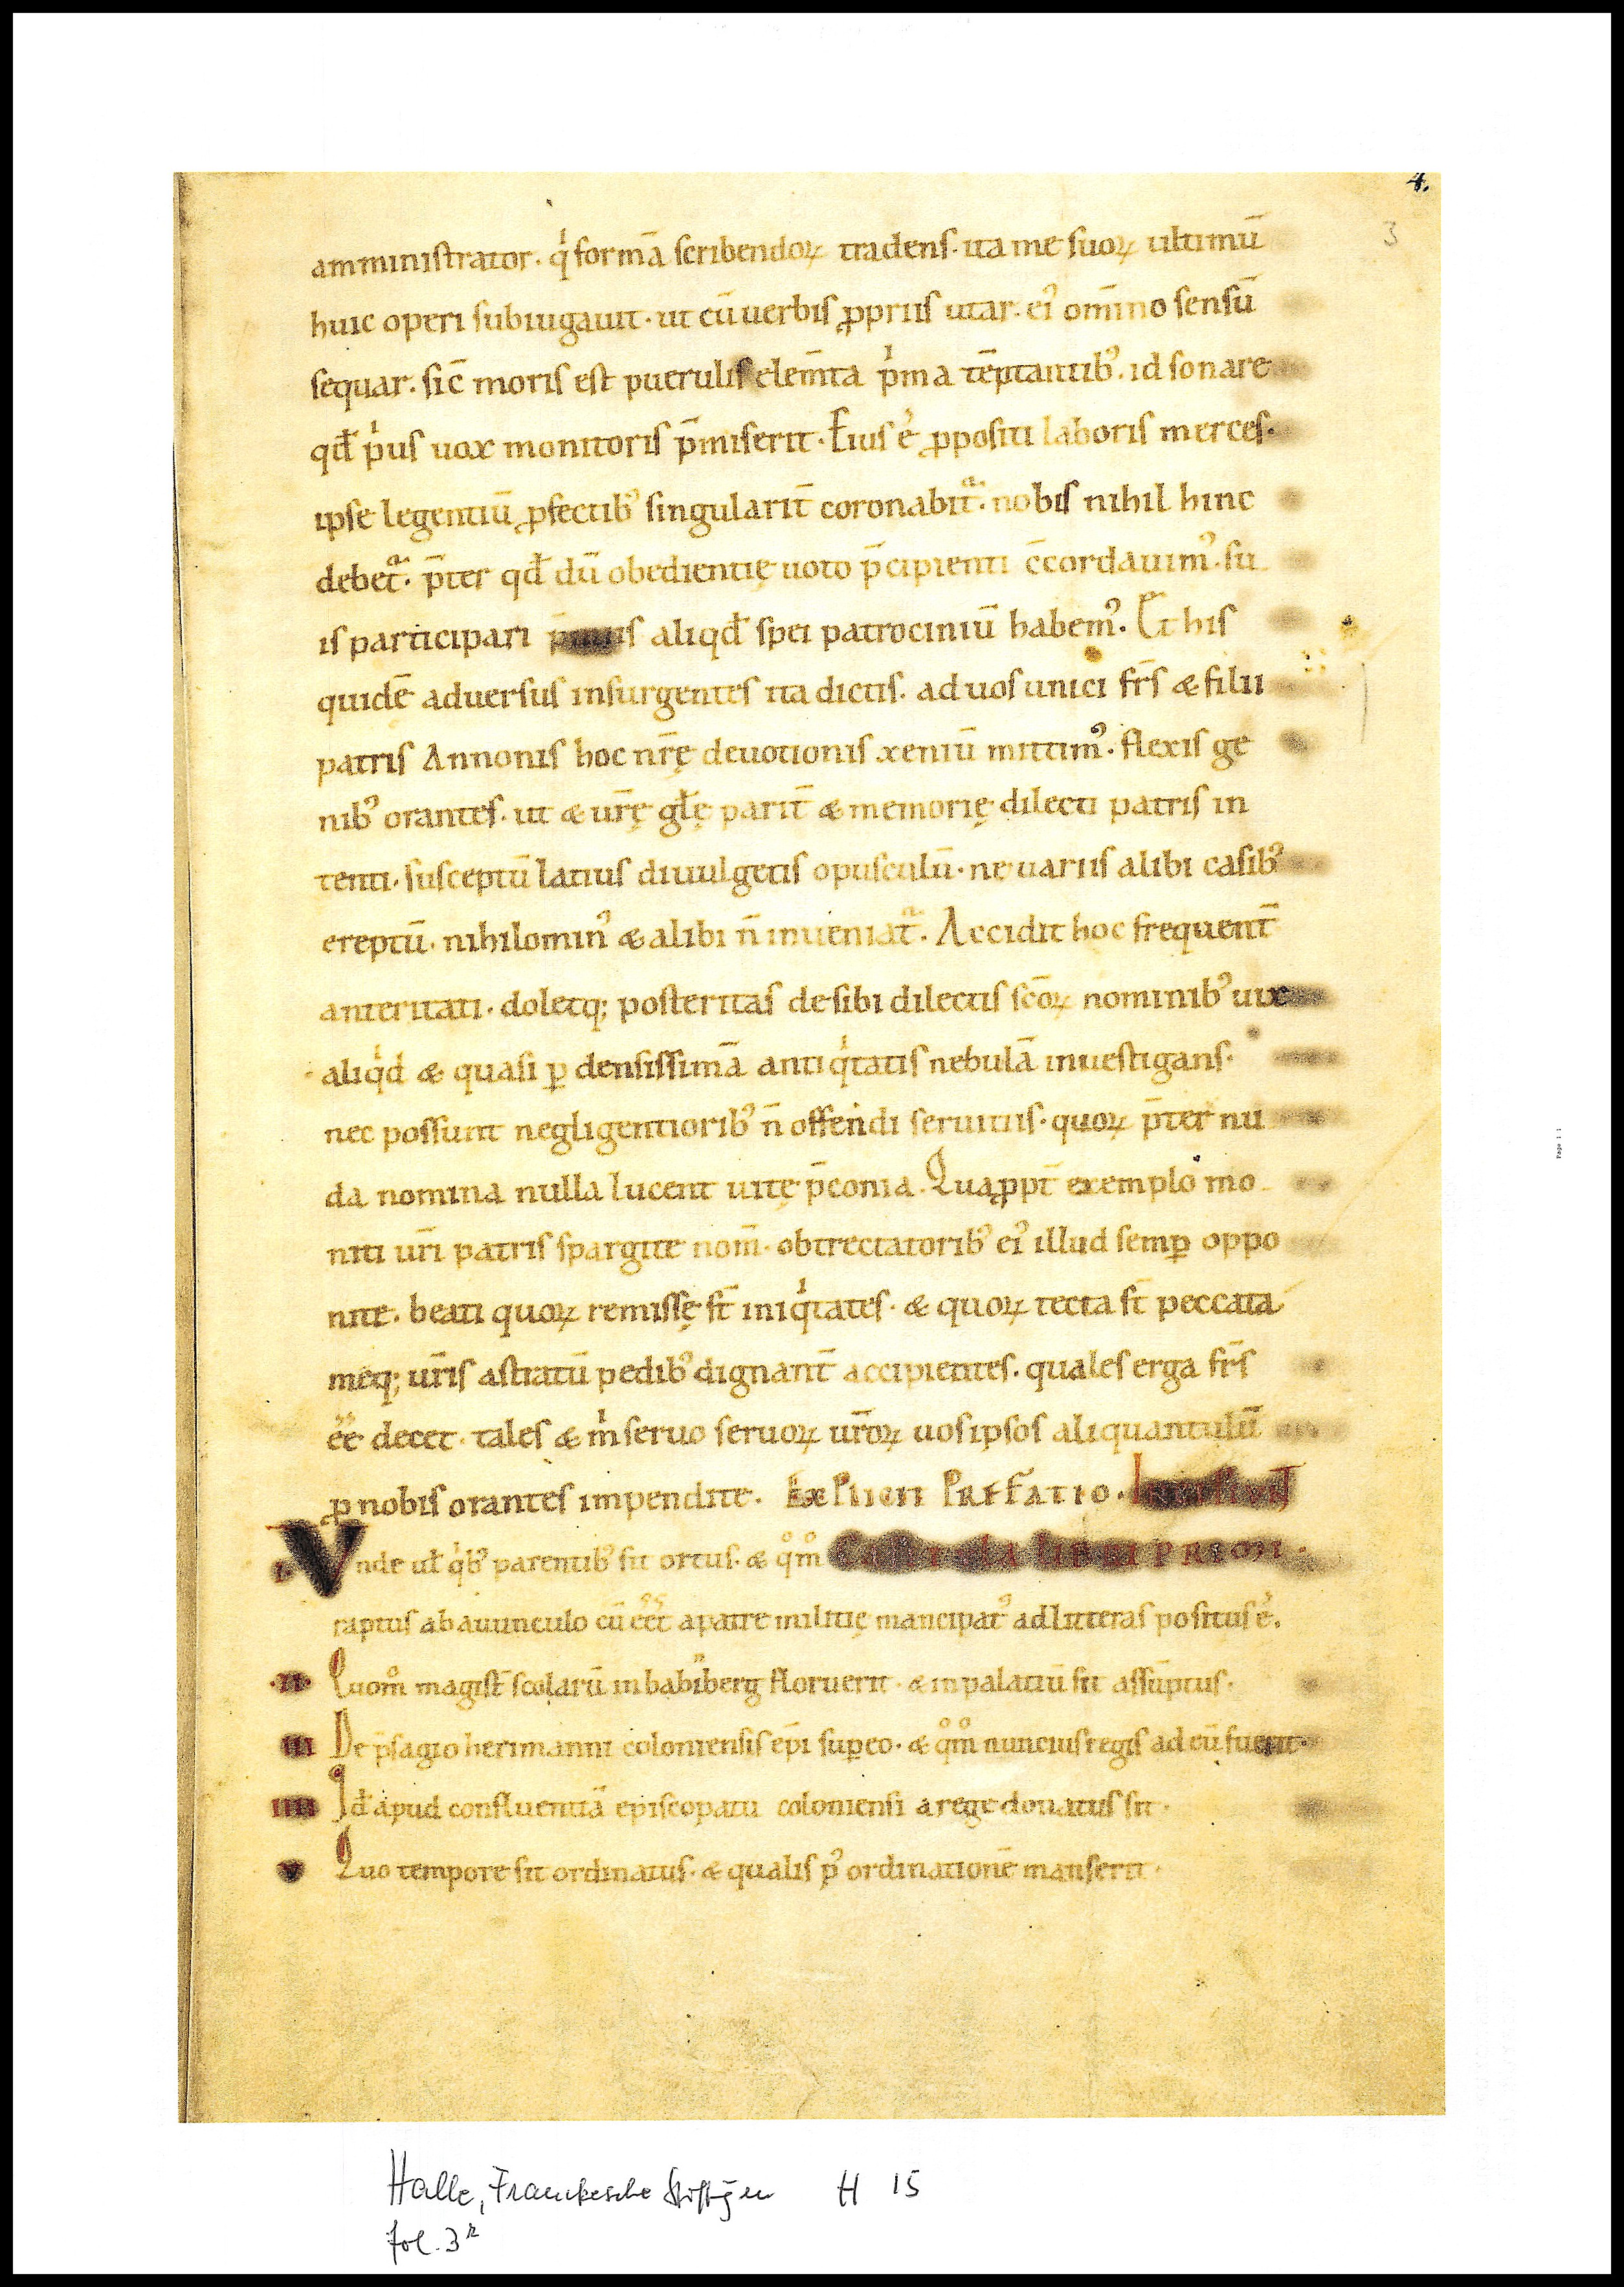 4.
3
amminiſtrator. qͥ formā ſcribendoꝝ tradens. ita me ſuoꝝ ultimū
huic operi ſubiugauit. ut cū uerbiſ ꝓpriiſ utar. eiꝰ om̄ino ſenſū
ſequar. ſic̄ moriſ eſt pueruliſ elem̄ta pͥma tēptantibꝰ. id ſonare
qđ pͥus uox monitoriſ p̄miſerit. Eius ē ꝓpoſiti laboris merceſ.
ipſe legentiū ꝓfectibꝰ ſingularit̄ coronabit᷑. nobiſ nihil hinc
debet᷑. p̄ter qđ dū obedientię uoto p̄cipienti c̄cordauimꝰ. ſu
iſ participari aliqđ ſpei patrociniū habemꝰ. Et hiſ
quidē aduerſuſ inſurgenteſ ita dictis. ad uoſ unici fr̄ſ & filii
patriſ Annoniſ hoc nr̄ę deuotioniſ xeniū mittimꝰ. flexiſ ge
nibꝰ oranteſ. ut & ur̄ę gl̄ę parit̄ & memorię dilecti patriſ in
tenti. ſuſceptū latiuſ diuulgetiſ opuſculū. ne uariiſ alibi caſibꝰ
ereptū. nihilominꝰ & alibi n̄ inueniat᷑. Accidit hoc frequent̄
anteritati. doletq; poſteritaſ de ſibi dilectiſ ſcōꝝ nominibꝰ uix
aliqͥd & quaſi ꝑ denſiſſimā antiqͥtatiſ nebulā inueſtiganſ.
nec poſſunt negligentioribꝰ n̄ offendi ſeruituſ. quoꝝ p̄ter nu
da nomina nulla lucent uitę p̄conia. Quaꝓpt̄ exemplo mo
niti ur̄i patriſ ſpargite nom̄. obtrectatoribꝰ eiꝰ illud ſemꝑ oppo
nite. beati quoꝝ remiſſę ſt̄ iniqͥtateſ. & quoꝝ tecta ſt̄ peccata
meq; ur̄iſ aſtratū pedibꝰ dignant̄ accipienteſ. qualeſ erga fr̄ſ
ēē decet. taleſ & mͥ ſeruo ſeruoꝝ ur̄oꝝ uoſ ipſoſ aliquantulū
ꝓ nobiſ oranteſ impendite. ExPlicit PreFatio.
.I. Vnde ul̄ qͥbꝰ parentibꝰ ſit ortuſ. & qͦmͦ CaPitula liBri PRIMI.
raptuſ ab auunculo cū ēēt a patre militię mancipatꝰ ad litteraſ poſituſ ē.
.II. Quom̊ magiſt̄ ſcolarū in babīberg floruerit. & in palatiū ſit aſſūptuſ.
III De p̄ſagio herimanni colonienſiſ ep̄i ſuꝑ eo. & qͦmͦ nunciuſ regiſ ad eū fuerit.
IIII Qđ apud confluentiā epiſcopatu colonienſi a rege donatuſ ſit.
V Quo tempore ſit ordinatuſ. & qualiſ pꝰ ordinationē manſerit.
Page 1:1
Halle, Franckesche Stiftgen H 15
fol. 3r